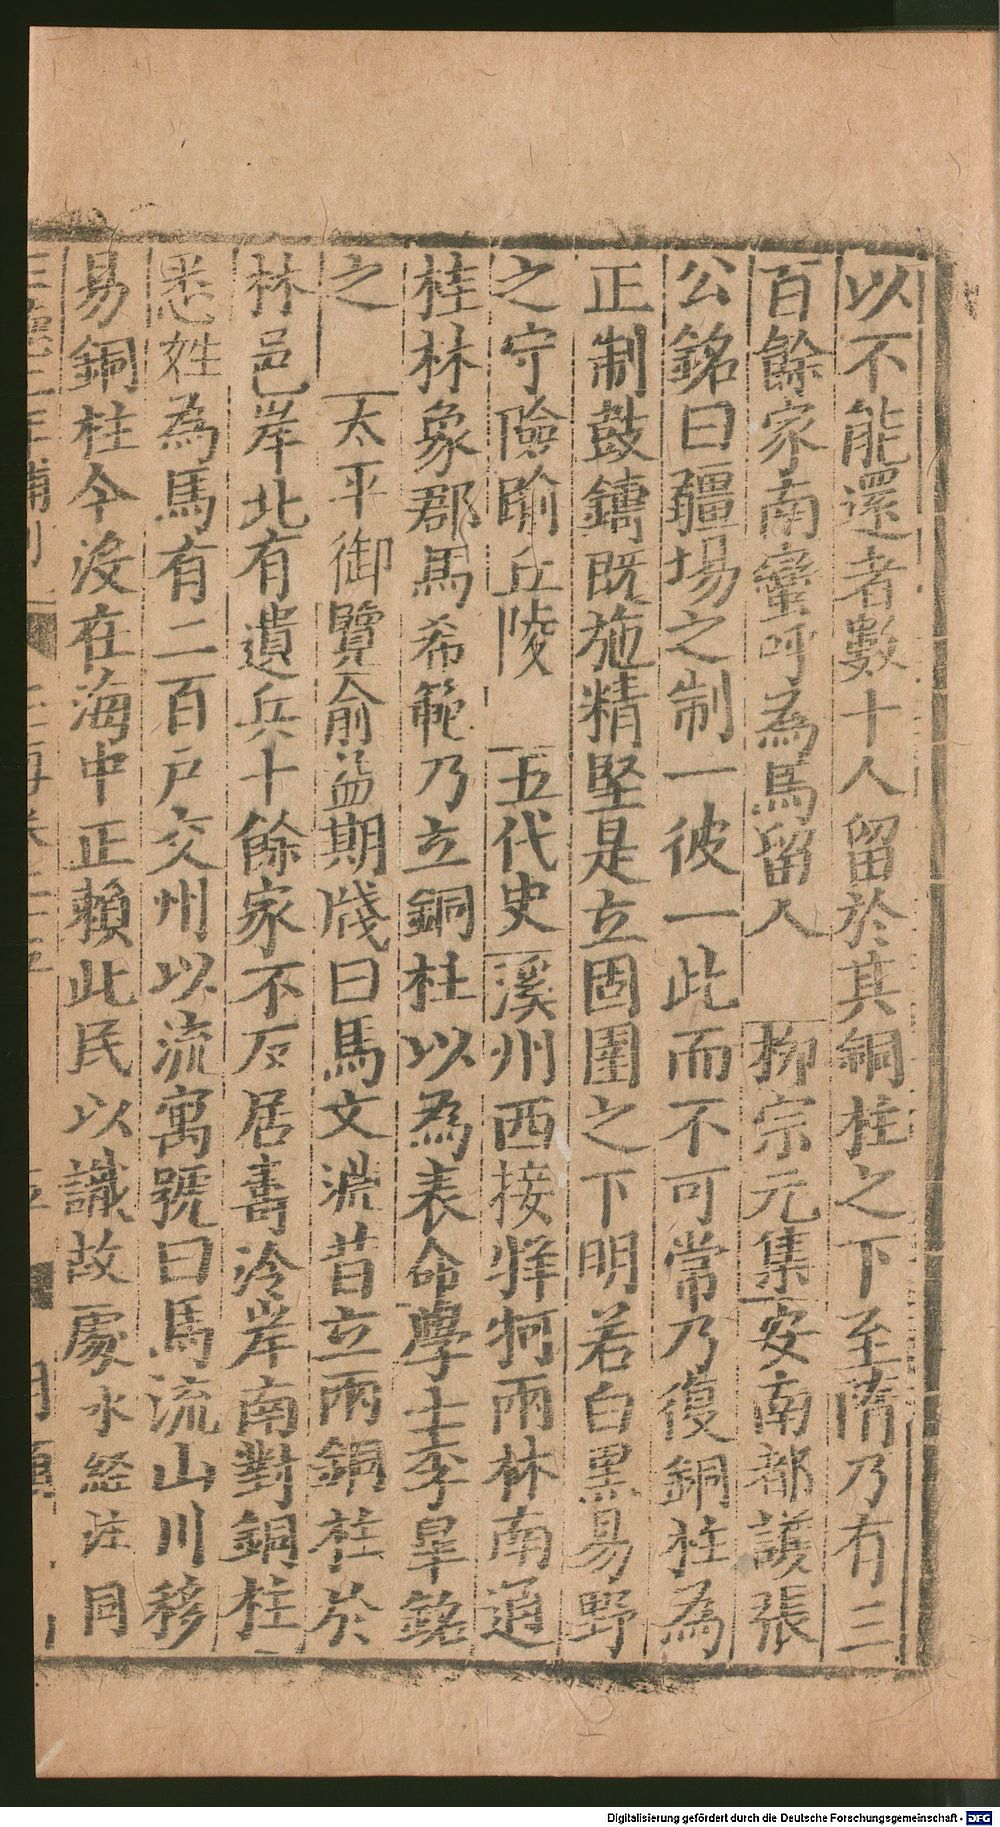 以不能還者數十人留於其銅柱之下至隋乃有三
百餘家南蠻呼為馬留人　柳宗元集安南都護張
公銘曰疆場之制一彼一此而不可常乃復銅柱為
正制鼓鑄既施精堅是立固圉之下明若白黒易野
之守險踰丘陵　五代史溪州西接牂牁兩林南通
桂林象郡馬希範乃立銅柱以為表命學士李皐銘
之　太平御覽俞益期牋曰馬文淵昔立兩銅柱於
林邑岸北有遺兵十餘家不反居壽泠岸南對銅柱
悉姓為馬有二百戶交州以流寓號曰馬流山川移
易銅柱今沒在海中正賴此民以識故處水經注同
正德二年補刊
Digitalisierung gefördert durch die Deutsche Forschungsgemeinschaft - DFG